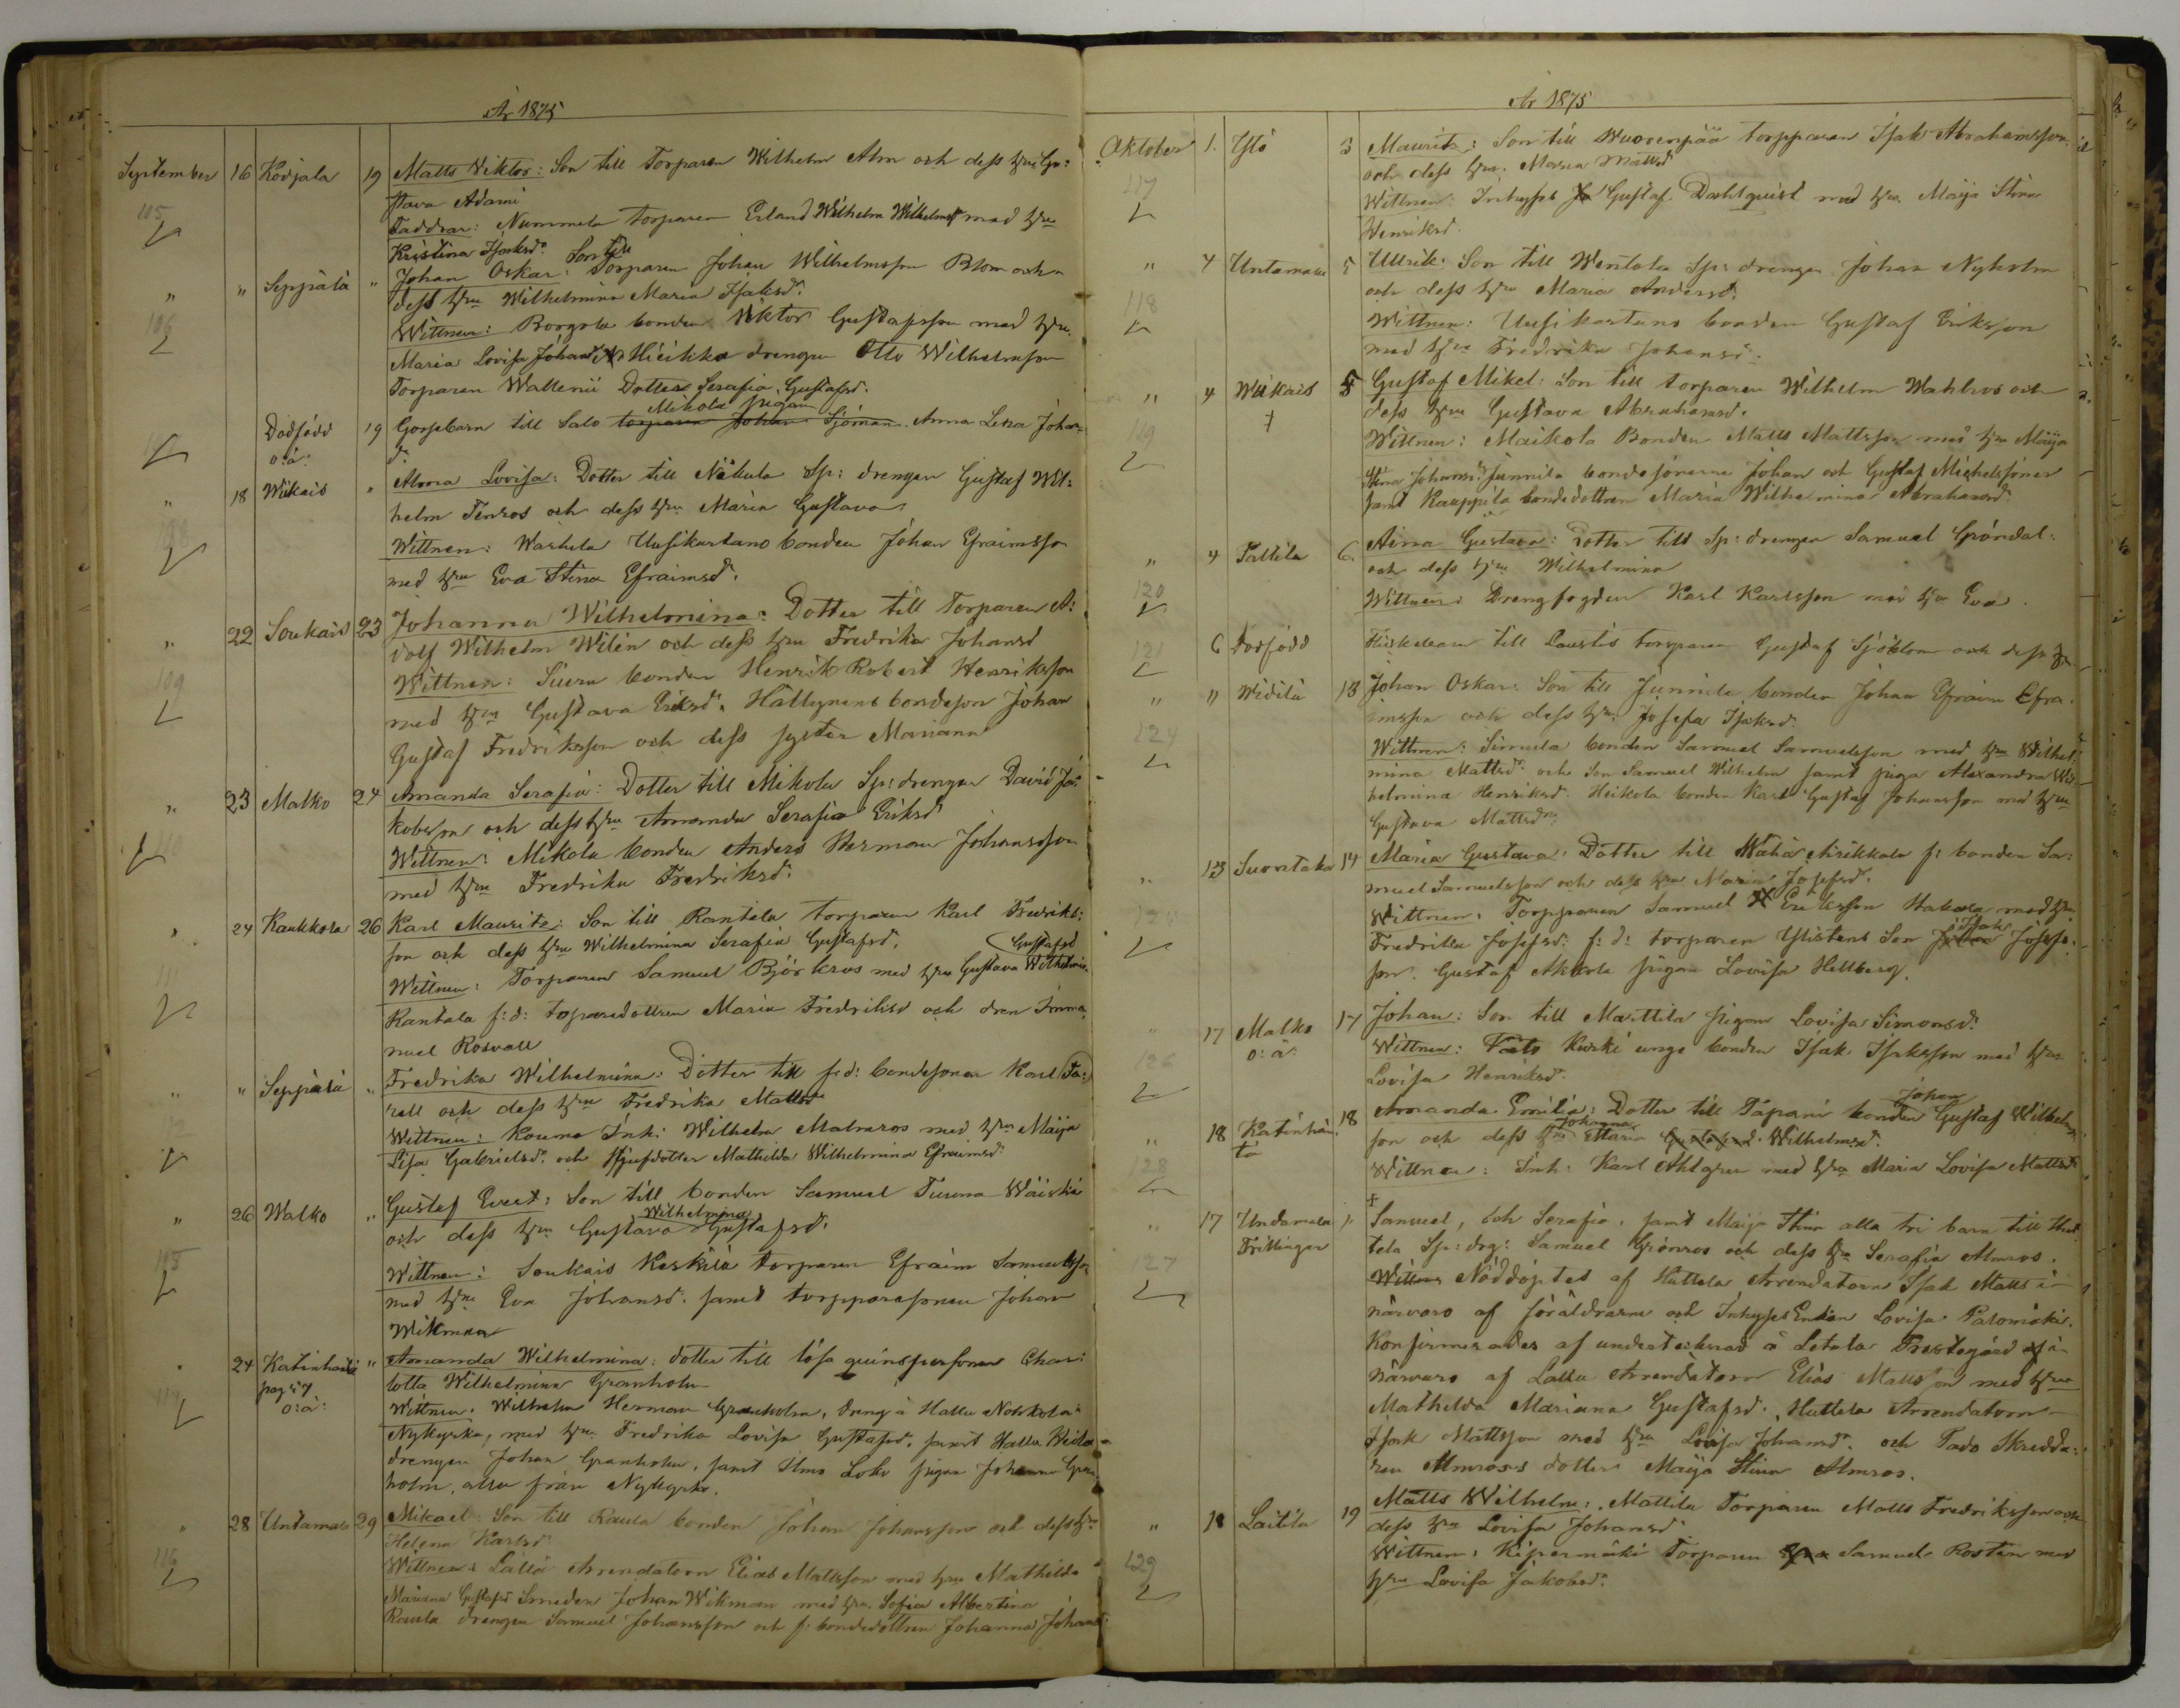 År 1875
September 16 Kodjala 19 Matts Viktor: Son till Torparen Wilhelm Alm och dess hru Gu:
stava Adami
105
Faddrar: Nummela torparen Erland Wilhelm Wilhelmss med hru
Kristina Isaksd.
" " Seppälä " Johan Oskar: Son till Torparen Johan Wilhelmsson Blom och
dess hru Wilhelmina Maria Isaksd.
106
Wittnen: Borgola bonden Viktor Gustafsson med hru
Maria Lovisa Johansd. Hieikka drengen Otto Wilhelmsson
Torparen Wallenii Dotter Serafia Gustafsd.
Dödfödd 19 Gossebarn till Salo torparen Johan Sjöman Mikola pigan Anna Lena Johans
o: ä: d.
" 18 Wiikais " Alma Lovisa: Dotter till Nikula Sp: drengen Gustaf Wil:
helm Tenros och dess hru Maria Gustava
108
Wittnen: Warhela Uusikartano bonden Johan Efraimsso
med hru Eva Stina Efraimsd.
" 22 Soukais 23 Johanna Wilhelmina: Dotter till Torparen A:
dolf Wilhelm Wilén och dess hru Fredrika Johansd
109
Wittnen: Suvra bonden Henrik Robert Henriksson
med hru Gustava Eriksd. Hallynens bondeson Johan
Gustaf Fredriksson och dess syster Mariana
" 23 Malko 24 Amanda Serafia: Dotter till Mikola Sp: drengen David Ja:
kobsson och dess hru Amanda Serafia Eriksd
110
Wittnen: Mikola bonden Anders Herman Johansson
med hru Fredrika Fredriksd.
" 24 Kaukkola 26 Karl Mauritz: Son till Rantala torparen Karl Fredriks:
son och dess hru Wilhelmina Serafia Gustafsd.
111
Wittnen: Torparen Samuel Björkros med hru Gustava Wilhelmin. Gustafsd
Rantala f:d: torparedottren Maria Fredriksd och dren Imma
nuel Rosvall
" " Seppälä " Fredrika Wilhelmina: Dotter till f:d: bondesonen Karl Ta:
rell och dess hru Fredrika Mattsd
Wittnen: Kouma Inh: Wilhelm Malmros med hru Maija
Lisa Gabrielsd. och styfdotter Mathilda Wilhelmina Efraimsd.
" 26 Walko " Gustaf Evert: Son till bonden Samuel Tuuna Wäiskä
och dess hru Gustava Wilhelmina Gustafsd.
Wittnen: Soukais Keskilä torparen Efraim Samuelsson
med hru Eva Johansd. samt torpparesonen Johan
Wikman
" 24 Katinhänta " Amanda Wilhelmina: dotter till lösa qvinspersonen Char:
pag 57
o: ä:
lotta Wilhelmina Granholm
114
Wittnen: Wilhelm Herman Granholm, dreng å Hallu Nohkola
Nykyrka, med hru Fredrika Lovisa Gustafsd, samt Hallu
drengen Johan Granholm, samt Lohi pigan Johanna Gran
holm, alla från Nykyrka.
" 28 Untamala 29 Mikael: Son till Raula bonden Johan Johansson och dess hru
Helena Karlsd
116
Wittnen: Lallä Arrendatorn Elias Mattsson med hru Mathilda
Mariana Gustafsd Smeden Johan Wikman med hru Sofia Albertina
Raula drengen Samuel Johansson och f: bondedottren Johanna Johansd.
År 1875
Oktober 1. Ylö 3 Mauritz: Son till Wuorenpää torpparen Isak Abrahamsson
och dess hru. Maria Mattsd
117
Wittnen: Inhyses Gustaf Dahlquist med hru. Maija Stina
Henriksd.
" 4 Untamala 5 Ullrik: Son till Wentola Sp: drengen Johan Nyholm
och dess hru Maria Andersd.
118
Wittnen: Uusikartano bonden Gustaf Eriksson
med hru Fredrika Johansd.
" 4 Wiikais 5 Gustaf Mikel: Son till torparen Wilhelm Wahlros och
dess hru Gustava Abrahamsd.
119
Wittnen: Maikola Bonden Matts Mattsson med hru Maija
Stina Johansd. Junnila bondesönerna Johan och Gustaf Michelssöner
samt Kauppila bondedottren Maria Wilhelmina Abrahamsd.
" 4 Palttila 6. Aina Gustava: Dotter till Sp: drengen Samuel Gröndal
och dess hru Wilhelmina
120
Wittnen: Drengfogden Karl Karlsson med hru Eva.
121
6 Dödfödd Flickebarn till Laustis torparen Gustaf Sjöblom och dess hru
" " Widilä 13 Johan Oskar: Son till Junnila bonden Johan Efraim Efra:
imsson och dess hru Josefa Isaksd.
124
Wittnen: Simula bonden Samuel Samuelsson med hru Wilhel:
mina Mattsd. och Son Samuel Wilhelm samt piga Alexandra Wil:
helmina Henriksd. Heikola bonden Karl Gustaf Johansson med hru
Gustava Mattsd.
" 13 Suontaka 14 Maria Gustava: Dotter till Wähä Arikkala f: bonden Sa:
muel Samuelsson och dess hru Maria Josefsd.
Wittnen: Torpparen Samuel Eriksson Hakala med hru
Fredrika Josefsd. f: d: torparen Ylistens Son Isak Josefs
son. Gustaf Akkola pigan Lovisa Hellberg.
" 17 Malko 17 Johan: Son till Marttila pigan Lovisa Simonsd.
o: ä:
126
Wittnen: Kurki unge bonden Isak Isaksson med hru
Lovisa Henriksd.
" 18 Katinhän 18 Amanda Emilia: Dotter till Tapani bonden Johan Gustaf Wilhelms
ta
son och dess hru Johanna Maria Wilhelmsd.
128
Wittnen: Inh: Karl Ahlgren med hru Maria Lovisa Mattsd.
" 17 Undamala Samuel, och Serafia, samt Maija Stina alla tri barn till Hut
Trillingar
tela Sp: drg: Samuel Grönros och dess hru Serafia Almros.
127
Nöddöptes af Huttela Arrendatorn Isak Matts i
närvaro af föräldrarne och Inhyses Enkan Lovisa Palomäki.
Konfirmerades af undertecknad å Letala Prestegård i
närvaro af Lalla Arrendatorn Elias Mattsson med hru
Mathilda Mariana Gustafsd. Huttela Arrendatorn
Isak Mattsson med hru Lovisa Johansd. och Tado Skredda:
ren Almross dotter Maija Stina Almros.
" 18 Laitila 19 Matts Wilhelm: Mattila Torparen Matts Fredriksson och
dess hru Lovisa Johansd
129
Wittnen: Kipermäki Torparen Samuel Rosten med
hru Lovisa Jakobsd.